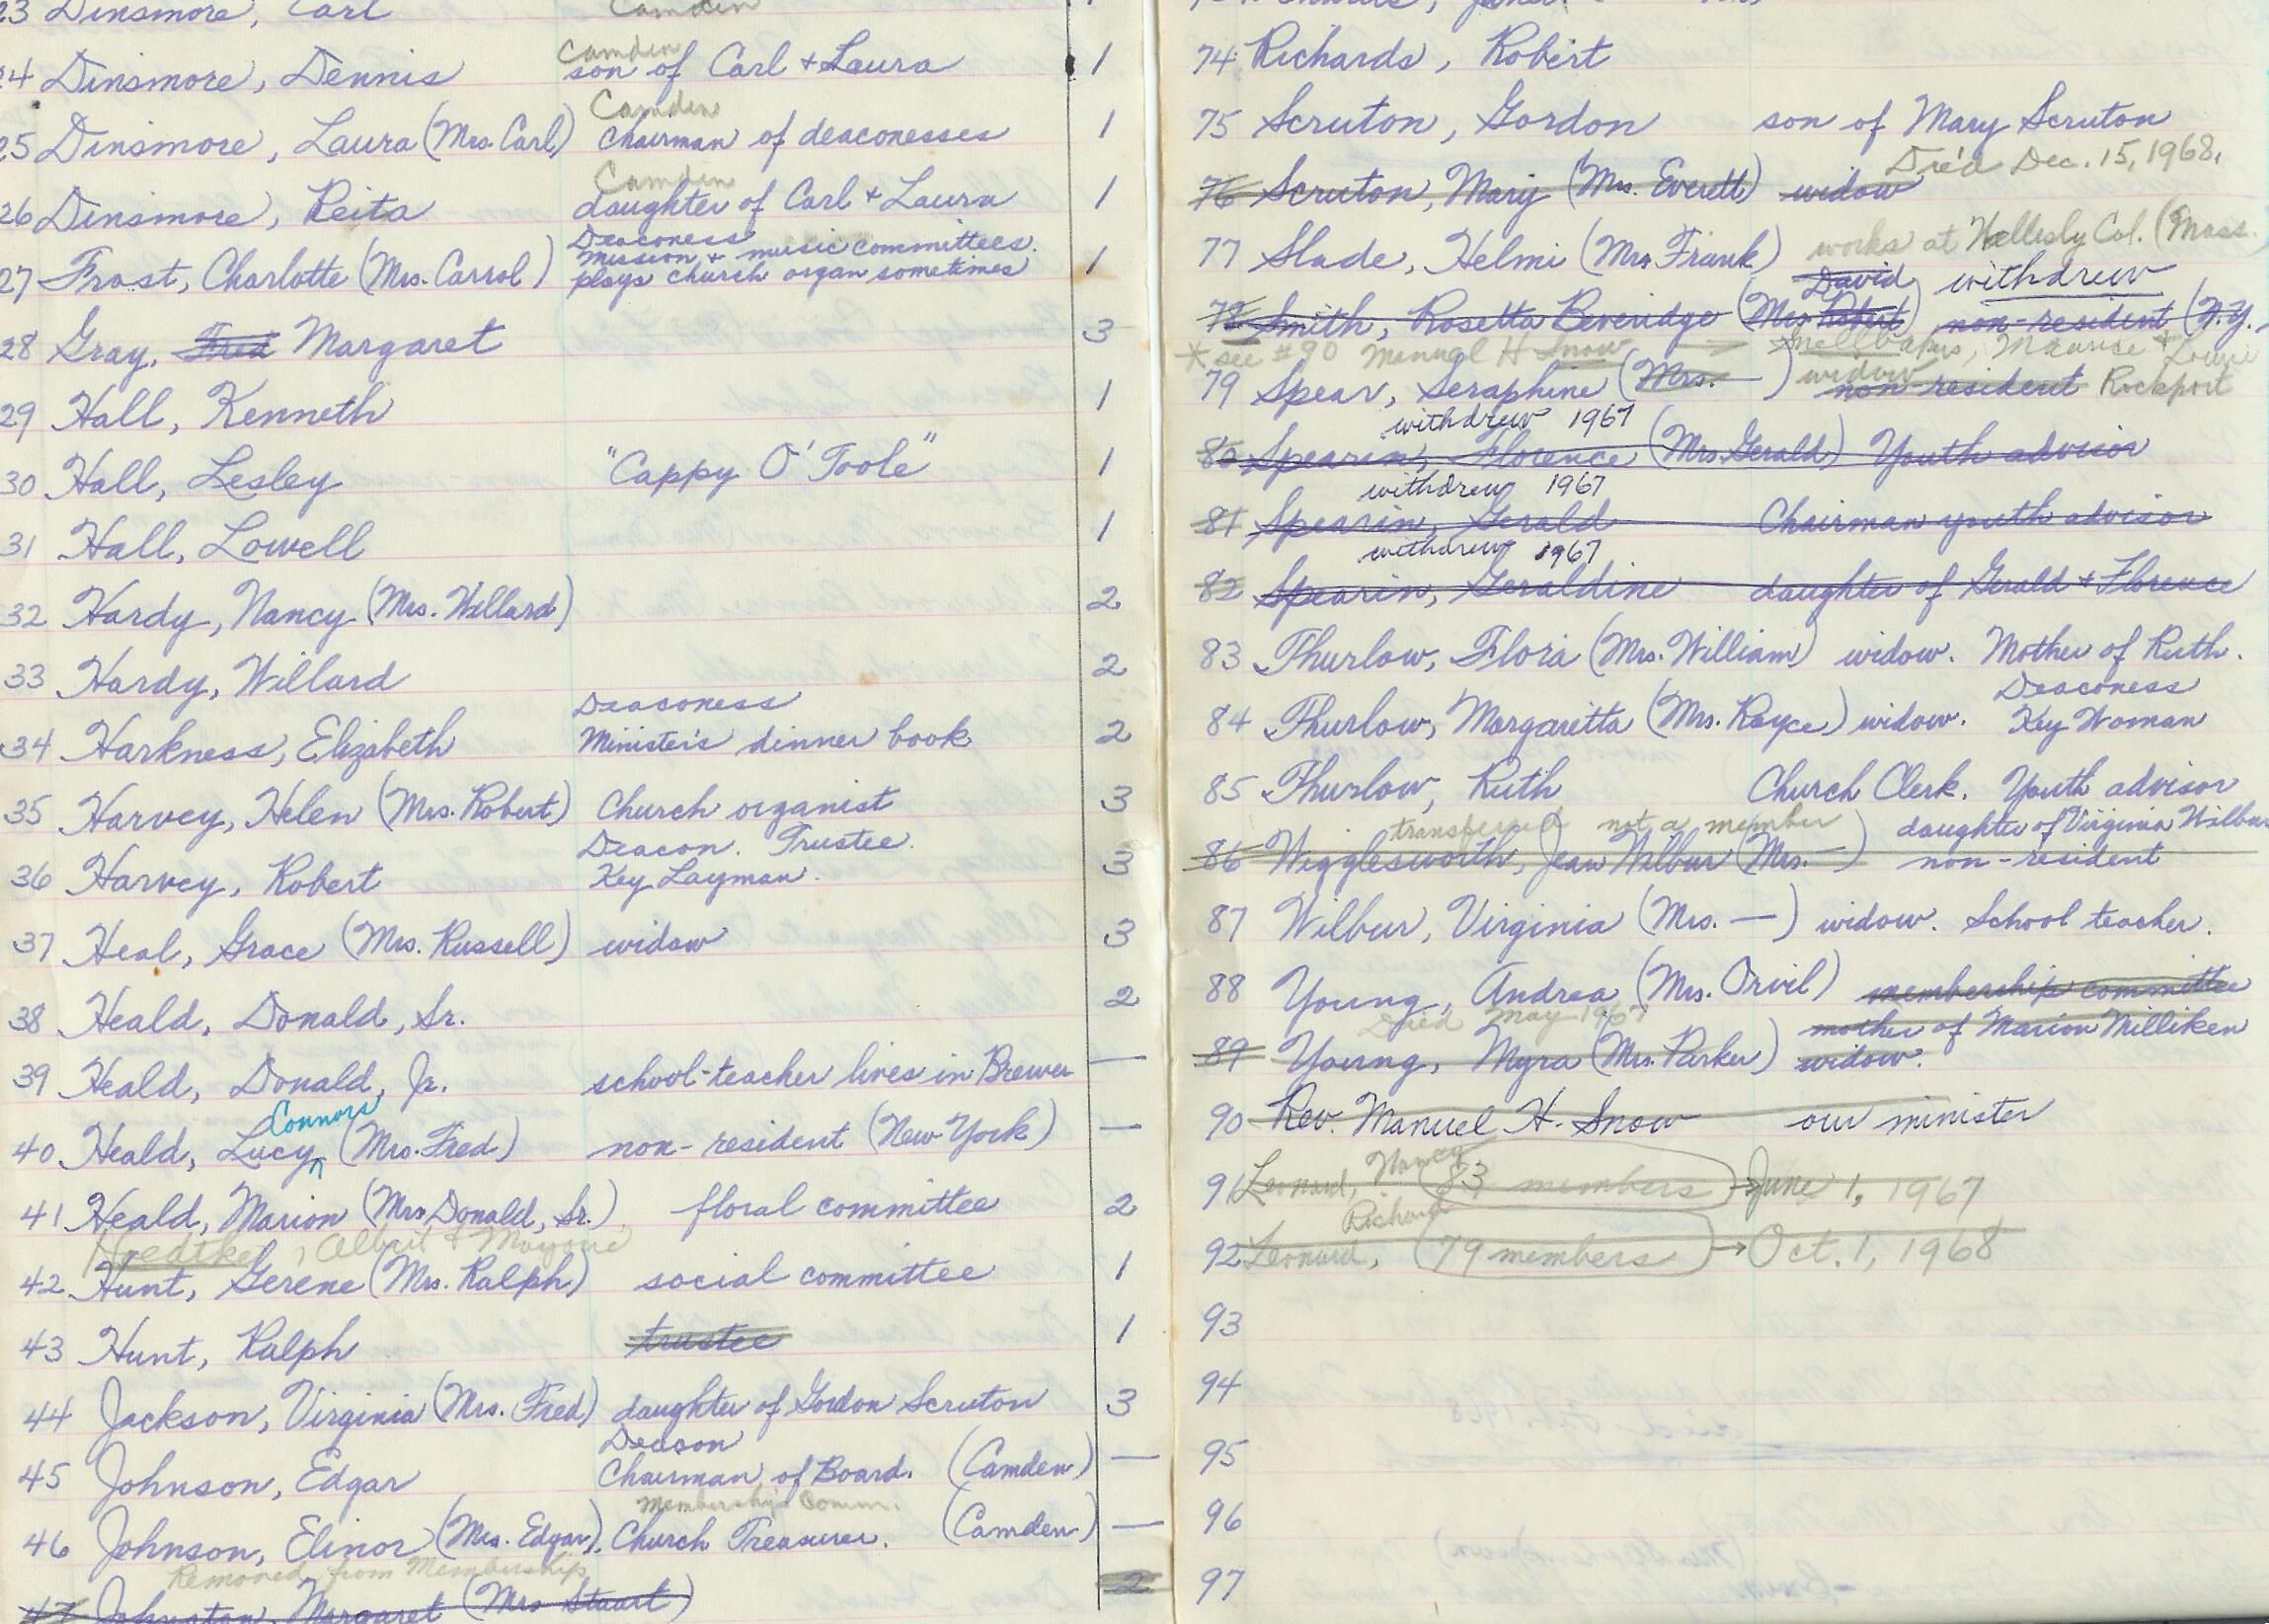 23 Dinsmore, Carl Camden 1
24 Dinsmore, Dennis Camden son of Carl + Laura 1
Camden
25 Dinsmore, Laura (Mrs. Carl) Chairman of deaconesses 1
Camden
26 Dinsmore, Reita daughter of Carl + Laura 1
Deaconess
Mission + music committees.
27 Frost, Charlotte (Mrs. Carrol) plays church organ sometimes 1
28 Gray, Fred Margaret 3
29 Hall, Kenneth 1
30 Hall, Lesley "Cappy O'Toole" 1
31 Hall, Lowell 1
32 Hardy, Nancy (Mrs. Willard) 2
33 Hardy, Willard 2
Deaconess
34 Harkness, Elizabeth Minister's dinner book 2
35 Harvey, Helen (Mrs. Robert) Church organist 3
Deacon. Trustee.
36 Harvey, Robert Key Layman. 3
37 Heal, Grace (Mrs. Russell) widow 3
38 Heald, Donald, Sr. 2
39 Heald, Donald, Jr. school-teacher lives in Brewer —
Connors
40 Heald, Lucy (Mrs. Fred) non-resident (New York) —
41 Heald, Marion (Mrs. Donald, Sr.) floral committee 2
Hredtke, Albert + Mayme
42 Hunt, Gerene (Mrs. Ralph) social committee 1
43 Hunt, Ralph trustee 1
44 Jackson, Virginia (Mrs. Fred) daughter of Gordon Scruton 3
Deacon
45 Johnson, Edgar Chairman of Board. (Camden) —
Membership Comm.
46 Johnson, Elinor (Mrs. Edgar). Church Treasurer. (Camden) —
Removed from Membership
47 Johnston, Margaret (Mrs Stuart) 2
74 Richards, Robert
75 Scruton, Gordon son of Mary Scruton
Died Dec. 15, 1968.
76 Scruton, Mary (Mrs. Everett) widow
works at Wellesly Col. (Mass.
77 Slade, Helmi (Mrs Frank)
David withdrew
78 Smith, Rosetta Beveridge (Mrs Robert) non-resident (N.Y.
* see #90 Manuel H Snow Snellbakers, Maurice + Louise
widow
79 Spear, Seraphine (Mrs. —) non-resident Rockport
withdrew 1967
80 Spearin, Florence (Mrs. Gerald) Youth advisor
withdrew 1967
81 Spearin, Gerald Chairman youth advisor
withdrew 1967
82 Spearin, Geraldine daughter of Gerald + Florence
83 Thurlow, Flora (Mrs. William) widow. Mother of Ruth.
Deaconess
84 Thurlow, Margaretta (Mrs. Royce) widow. Key Woman
85 Thurlow, Ruth Church Clerk. Youth advisor
transferred not a member daughter of Virginia Wilbur
86 Wigglesworth, Jean Wilbur (Mrs. —) non-resident
87 Wilbur, Virginia (Mrs. —) widow. School teacher.
88 Young, Andrea (Mrs. Orvil) membership committee
Died May 1967 mother of Marion Milliken
89 Young, Myra (Mrs. Parker) widow.
90 Rev. Manuel H. Snow our minister
91 Leonard, Nancy 83 members → June 1, 1967
Richard
92 Leonard, 79 members → Oct. 1, 1968
93
94
95
96
97